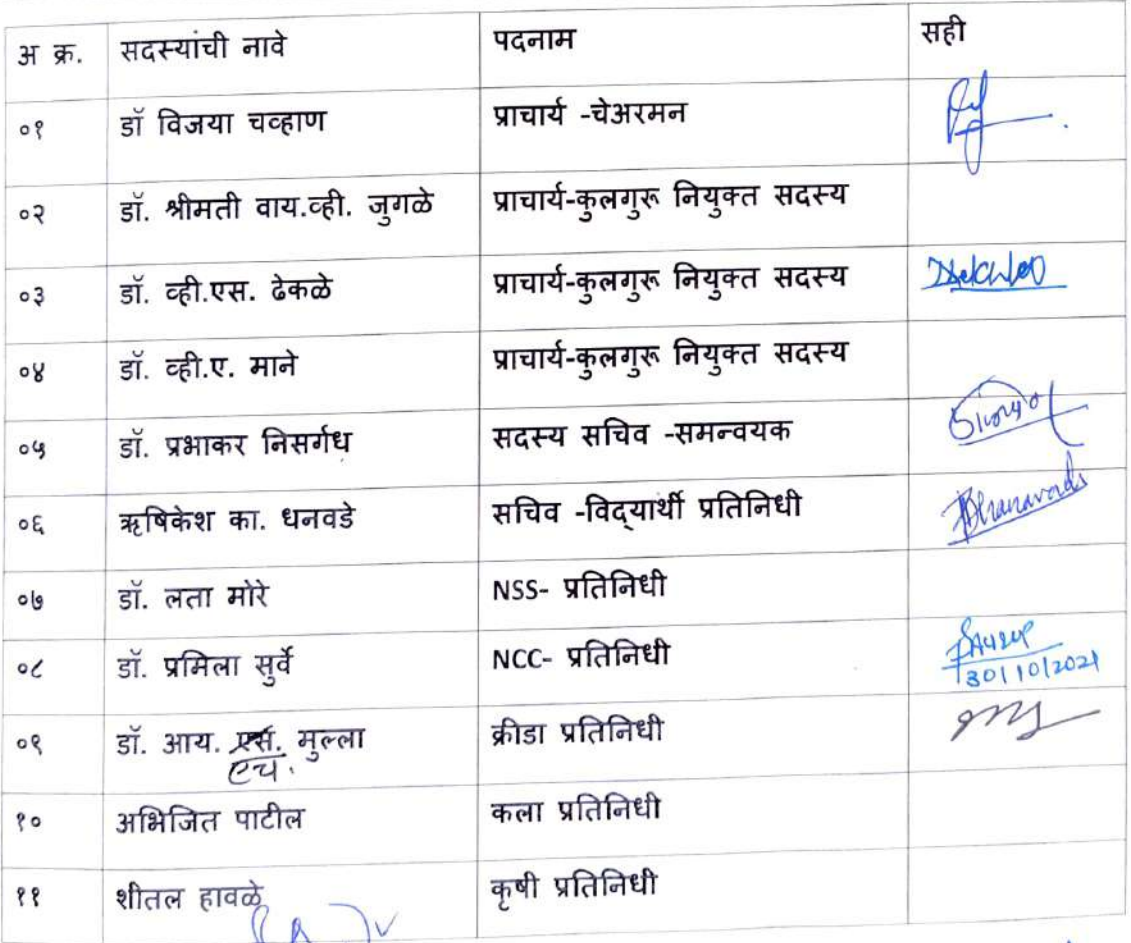 अ क्र. सदस्यांची नावे पदनाम सही
०१ डॉ विजया चव्हाण प्राचार्य -चेअरमन
०२ डॉ. श्रीमती वाय.व्ही. जुगळे प्राचार्य-कुलगुरू नियुक्त सदस्य
०३ डॉ. व्ही.एस. ढेकळे प्राचार्य-कुलगुरू नियुक्त सदस्य
०४ डॉ. व्ही.ए. माने प्राचार्य-कुलगुरू नियुक्त सदस्य
०५ डॉ. प्रभाकर निसर्गंध सदस्य सचिव -समन्वयक
०६ ऋषिकेश का. धनवडे सचिव -विद्यार्थी प्रतिनिधी
०७ डॉ. लता मोरे NSS- प्रतिनिधी
०८ डॉ. प्रमिला सुर्वे NCC- प्रतिनिधी
30/10/2021
०९ डॉ. आय. एस. मुल्ला क्रीडा प्रतिनिधी
एच.
१० अभिजित पाटील कला प्रतिनिधी
११ शीतल हावळे कृषी प्रतिनिधी